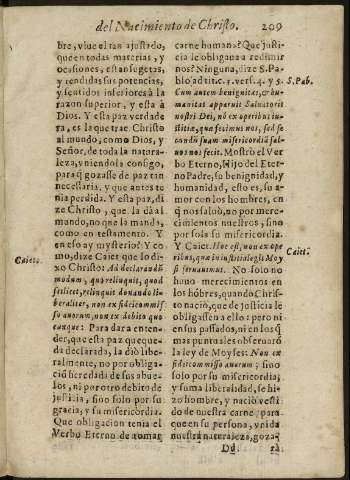 del Nacimiento de Christo. 209
bre, viue el tan ajustado,
que en todas materias, y
ocasiones, estan sugetas,
y rendidas sus potencias,
y sentidos inferiores à la
razon superior, y esta à
Dios. Y esta paz verdade
ra, es la que trae Christo
al mundo, como Dios, y
Señor, de toda la natura-
leza, vniendola consigo,
para q̃ gozasse de paz tan
necessaria, y que antes te
nia perdida. Y esta paz, di
ze Christo, que la dà al
mundo, no que la manda,
como en testamento. Y
en esto ay mysterio? Y co
mo, dize Caiet que lo di-
Caiet.
xo Christo: Ad declarandũ
modum, quo reliquit, quod
scilicet, reliquit donando li-
beraliter, non ex fideicommis
so auorum, non ex debito quo
cunque: Para dar a enten-
der, que esta paz que que-
da declarada, la diò libe-
ralmente, no por obliga-
ciõ heredada de sus abue-
los, ni por otro debito de
justicia, sino solo por su
gracia, y su misericordia.
Que obligacion tenia el
Verbo Eterno de tomar
carne humana? Que justi-
cia le obligaua a redimir
nos? Ninguna, dize S. Pa-
blo ad tit. c. 3. vers. 4. y 5.
S. Pab.
Cum autem benignitas, & hu-
manitas apparuit Saluatoris
nostri Dei, nõ ex operibus iu-
stitiæ, quæ fecimus nos, sed se
cundũ suam misericordiã sal-
uos nos fecit. Mostrò el Ver
bo Eterno, Hijo del Eter-
no Padre, su benignidad, y
humanidad, esto es, su a-
mor con los hombres, en
q̃ nos saluò, no por mere-
cimientos nuestros, sino
por sola su misericordia.
Y Caiet. Hoc est, non ex ope
Caiet.
ribus, quæ in iustitia legis Moy
si seruauimus. No solo no
huuo merecimientos en
los hõbres, quando Chris-
to naciò, que de justicia le
obligassen a ello: pero ni
en sus passados, ni en los q̃
mas puntuales obseruarõ
la ley de Moyses: Non ex
fideicommisso auorum; sino
solo por su misericordia;
y suma liberalidad, se hi-
zo hombre, y naciò vesti
do de nuestra carne, para
que en su persona, y vnida
nuestra naturaleza, goza-
Dd
rà